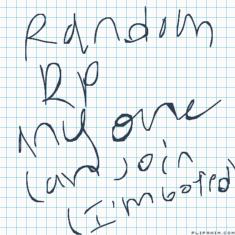 Random
Rp
Any one
can join
(I'm bored)
FLIPANIM.COM